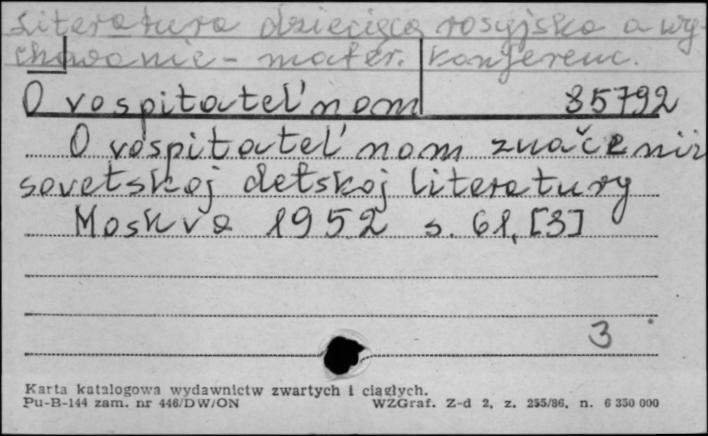 Literatura dziecięca rosyjska a wy-
chowanie - mater. konferenc.
O vospitatel'nom 85792
O vospitatel'nom značenii
sovetskoj detskoj literatury
Moskva 1952 s. 61, [3]
3
Karta katalogowa wydawnictw zwartych i ciągłych.
Pu-B-144 zam. nr 446/DW/ON WZGraf. Z-d 2, z. 255/86, n. 6 350 000